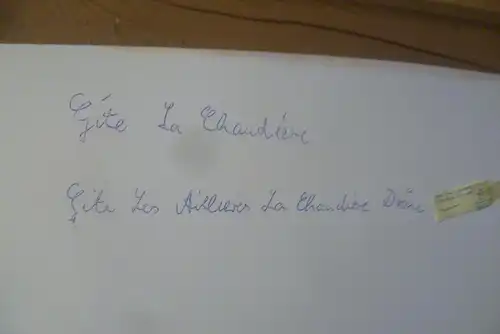 Gîte La Chaudière
Gîte Les La Chaudière Drôme